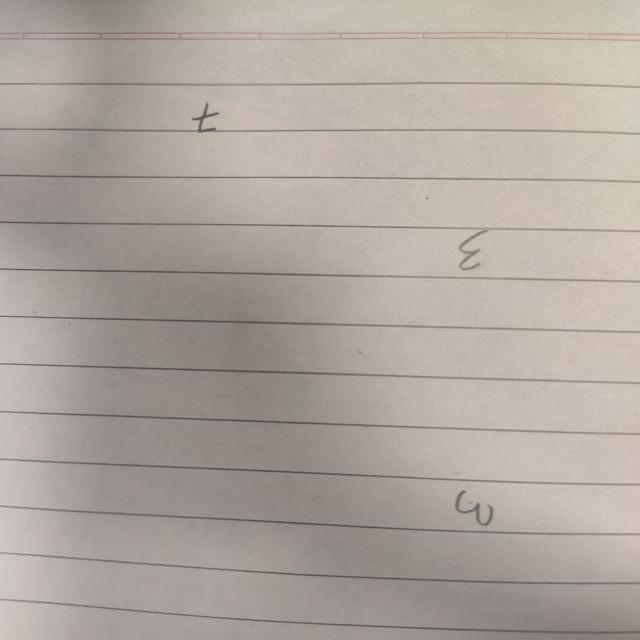 t
ε
ω